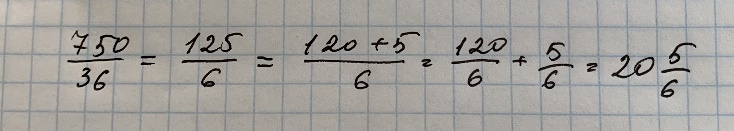 750/36 = 125/6 = (120+5)/6 = 120/6 + 5/6 = 20 5/6